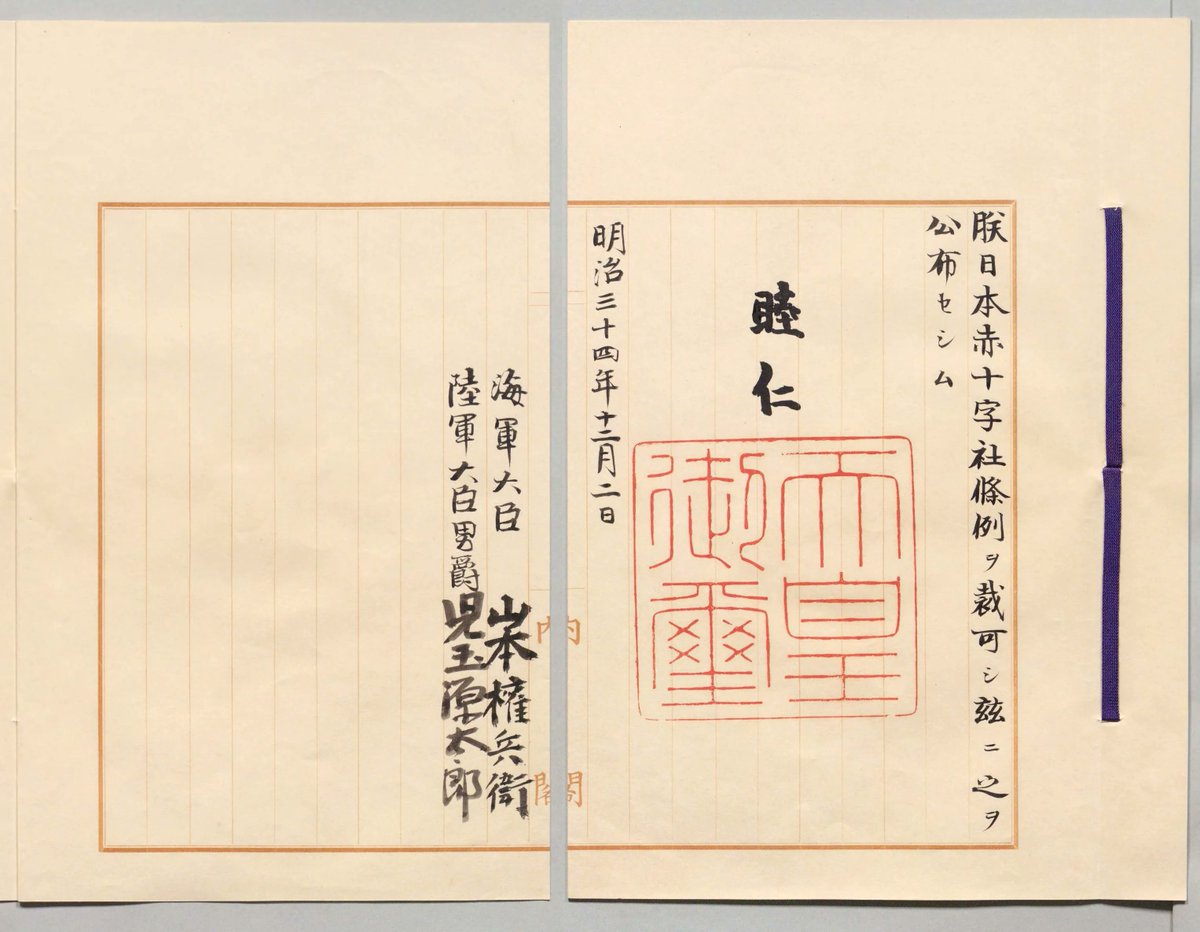 朕日本赤十字社條例ヲ裁可シ玆ニ之ヲ
公布セシム
睦仁
天皇
御璽
明治三十四年十二月二日
海軍大臣 山本權兵衛
陸軍大臣男爵 児玉源太郎
内閣